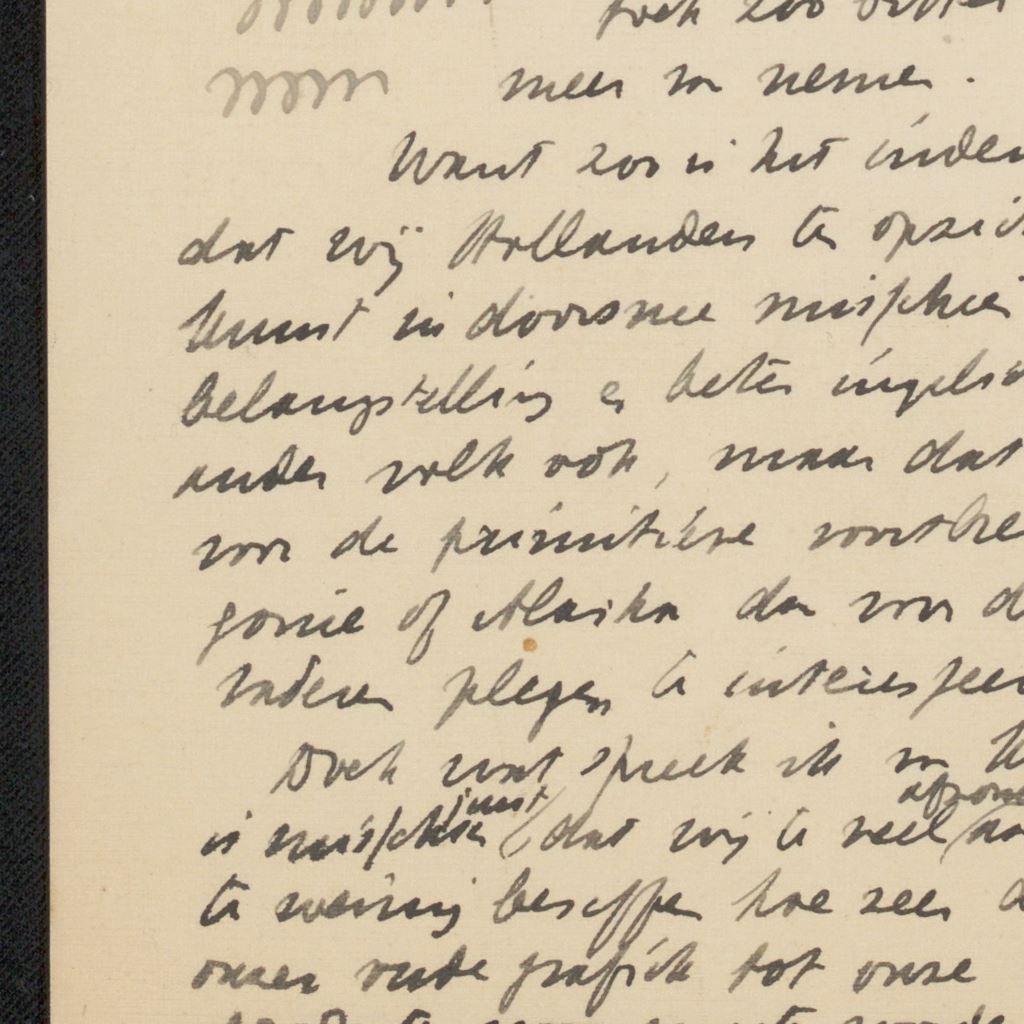 toch zoo
meer van nemen.
Want zoo is het inder
dat wij Hollanders te opzich
kunst in doorsnee misschie
belangstelling en beter ingelich
ander volk ook, maar dat
voor de primitieve voortbre
gonië of Alaska dan voor d
vaderen plegen te interesseer
Doch wat spreek ik van
juist
is misschien dat wij te veel
te weinig beseffen hoe zeer
onzer oude grafiek tot onze